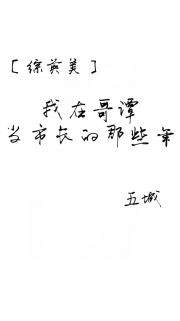 [综英美]
我在哥谭
当市长的那些年
五城